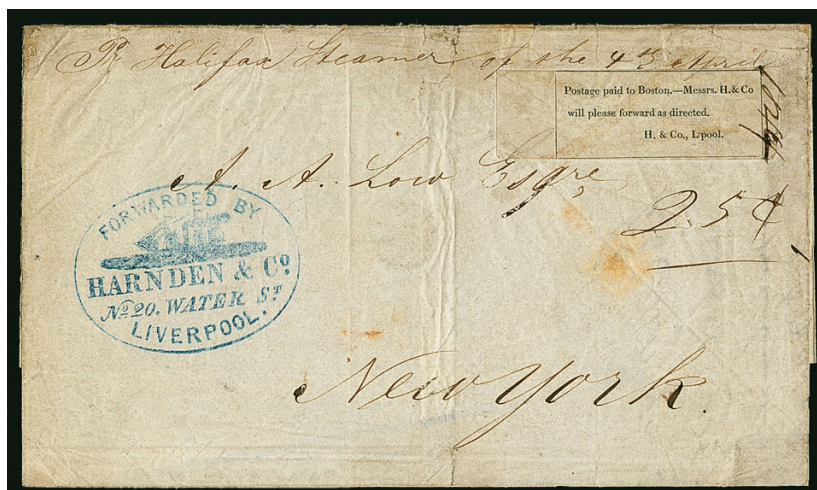 Pr Halifax Steamer of the 4th April
Postage paid to Boston.—Messrs. H. & Co
will please forward as directed.
H. & Co., L'pool.
A. A. Low Esqre
25¢
FORWARDED BY
HARNDEN & Co.
No. 20, WATER ST
LIVERPOOL.
New York.